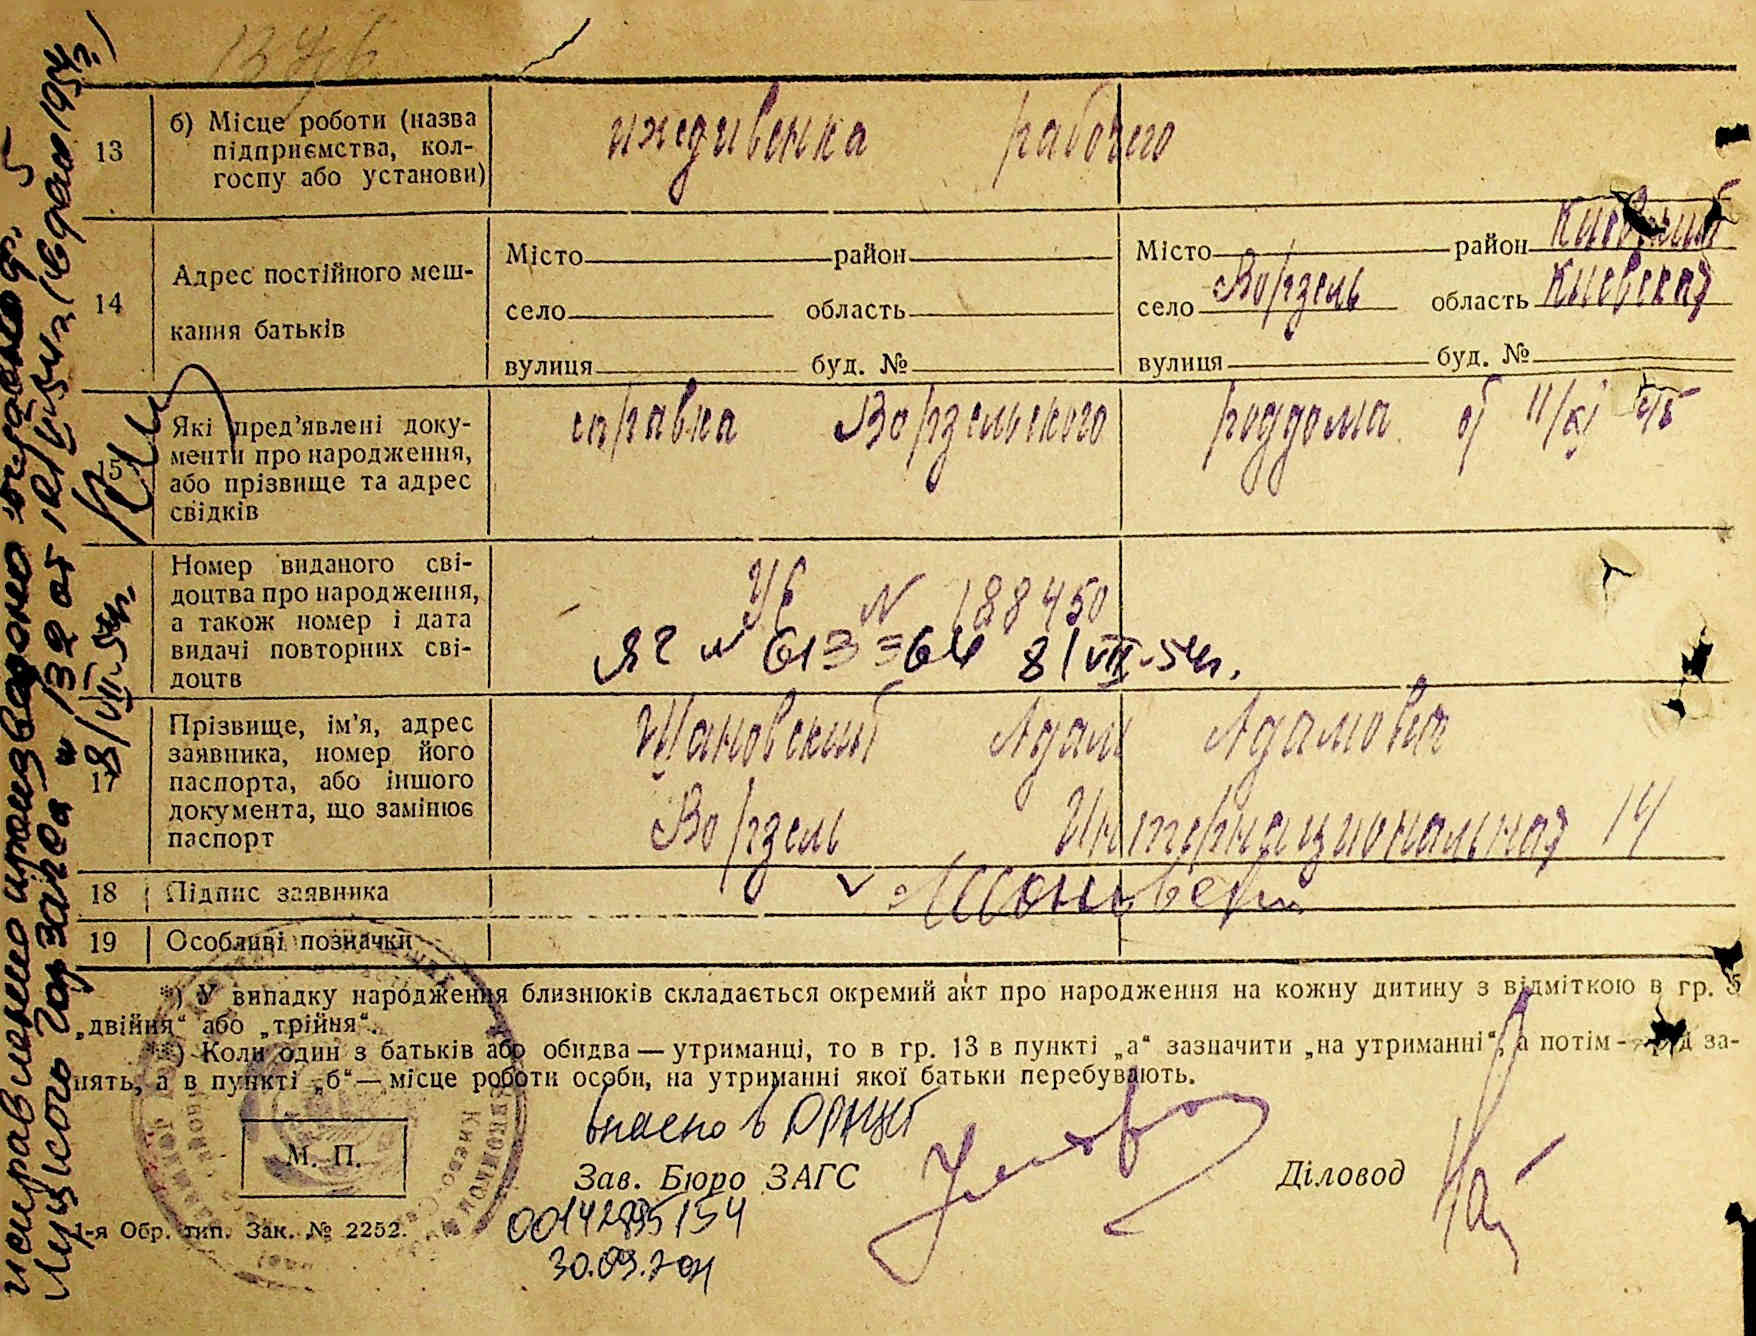 13
б) Місце роботи (назва
підприємства, кол-
госпу або установи)
иждивенка рабочего
14
Адрес постійного меш-
кання батьків
Місто район
село область
вулиця буд. №
Місто район Киевский
село Ворзель область Киевская
вулиця буд. №
15
Які пред’явлені доку-
менти про народження,
або прізвище та адрес
свідків
справка Ворзельского роддома
Номер виданого сві-
доцтва про народження,
а також номер і дата
видачі повторних сві-
доцтв
УЕ N 188450
ЯГ № 613364 8/VII-54г.
17
Прізвище, ім’я, адрес
заявника, номер його
паспорта, або іншого
документа, що замінює
паспорт
Шановский Адам Адамович
Ворзель Интернациональная 14
18
Підпис заявника
19
Особливі позначки
*) У випадку народження близнюків складається окремий акт про народження на кожну дитину з відміткою в гр. 5
„двійня“ або „трійня“.
**) Коли один з батьків або обидва — утриманці, то в гр. 13 в пункті „а“ зазначити „на утриманні“, а потім — рід за-
нять, а в пункті „б“ — місце роботи особи, на утриманні якої батьки перебувають.
внесено в ДРАЦСГ
М. П.
Зав. Бюро ЗАГС
Діловод
1-я Обр. тип. Зак. № 2252.
30.09.
исправлено произведено
загса № 132 от
8/VII-54г.